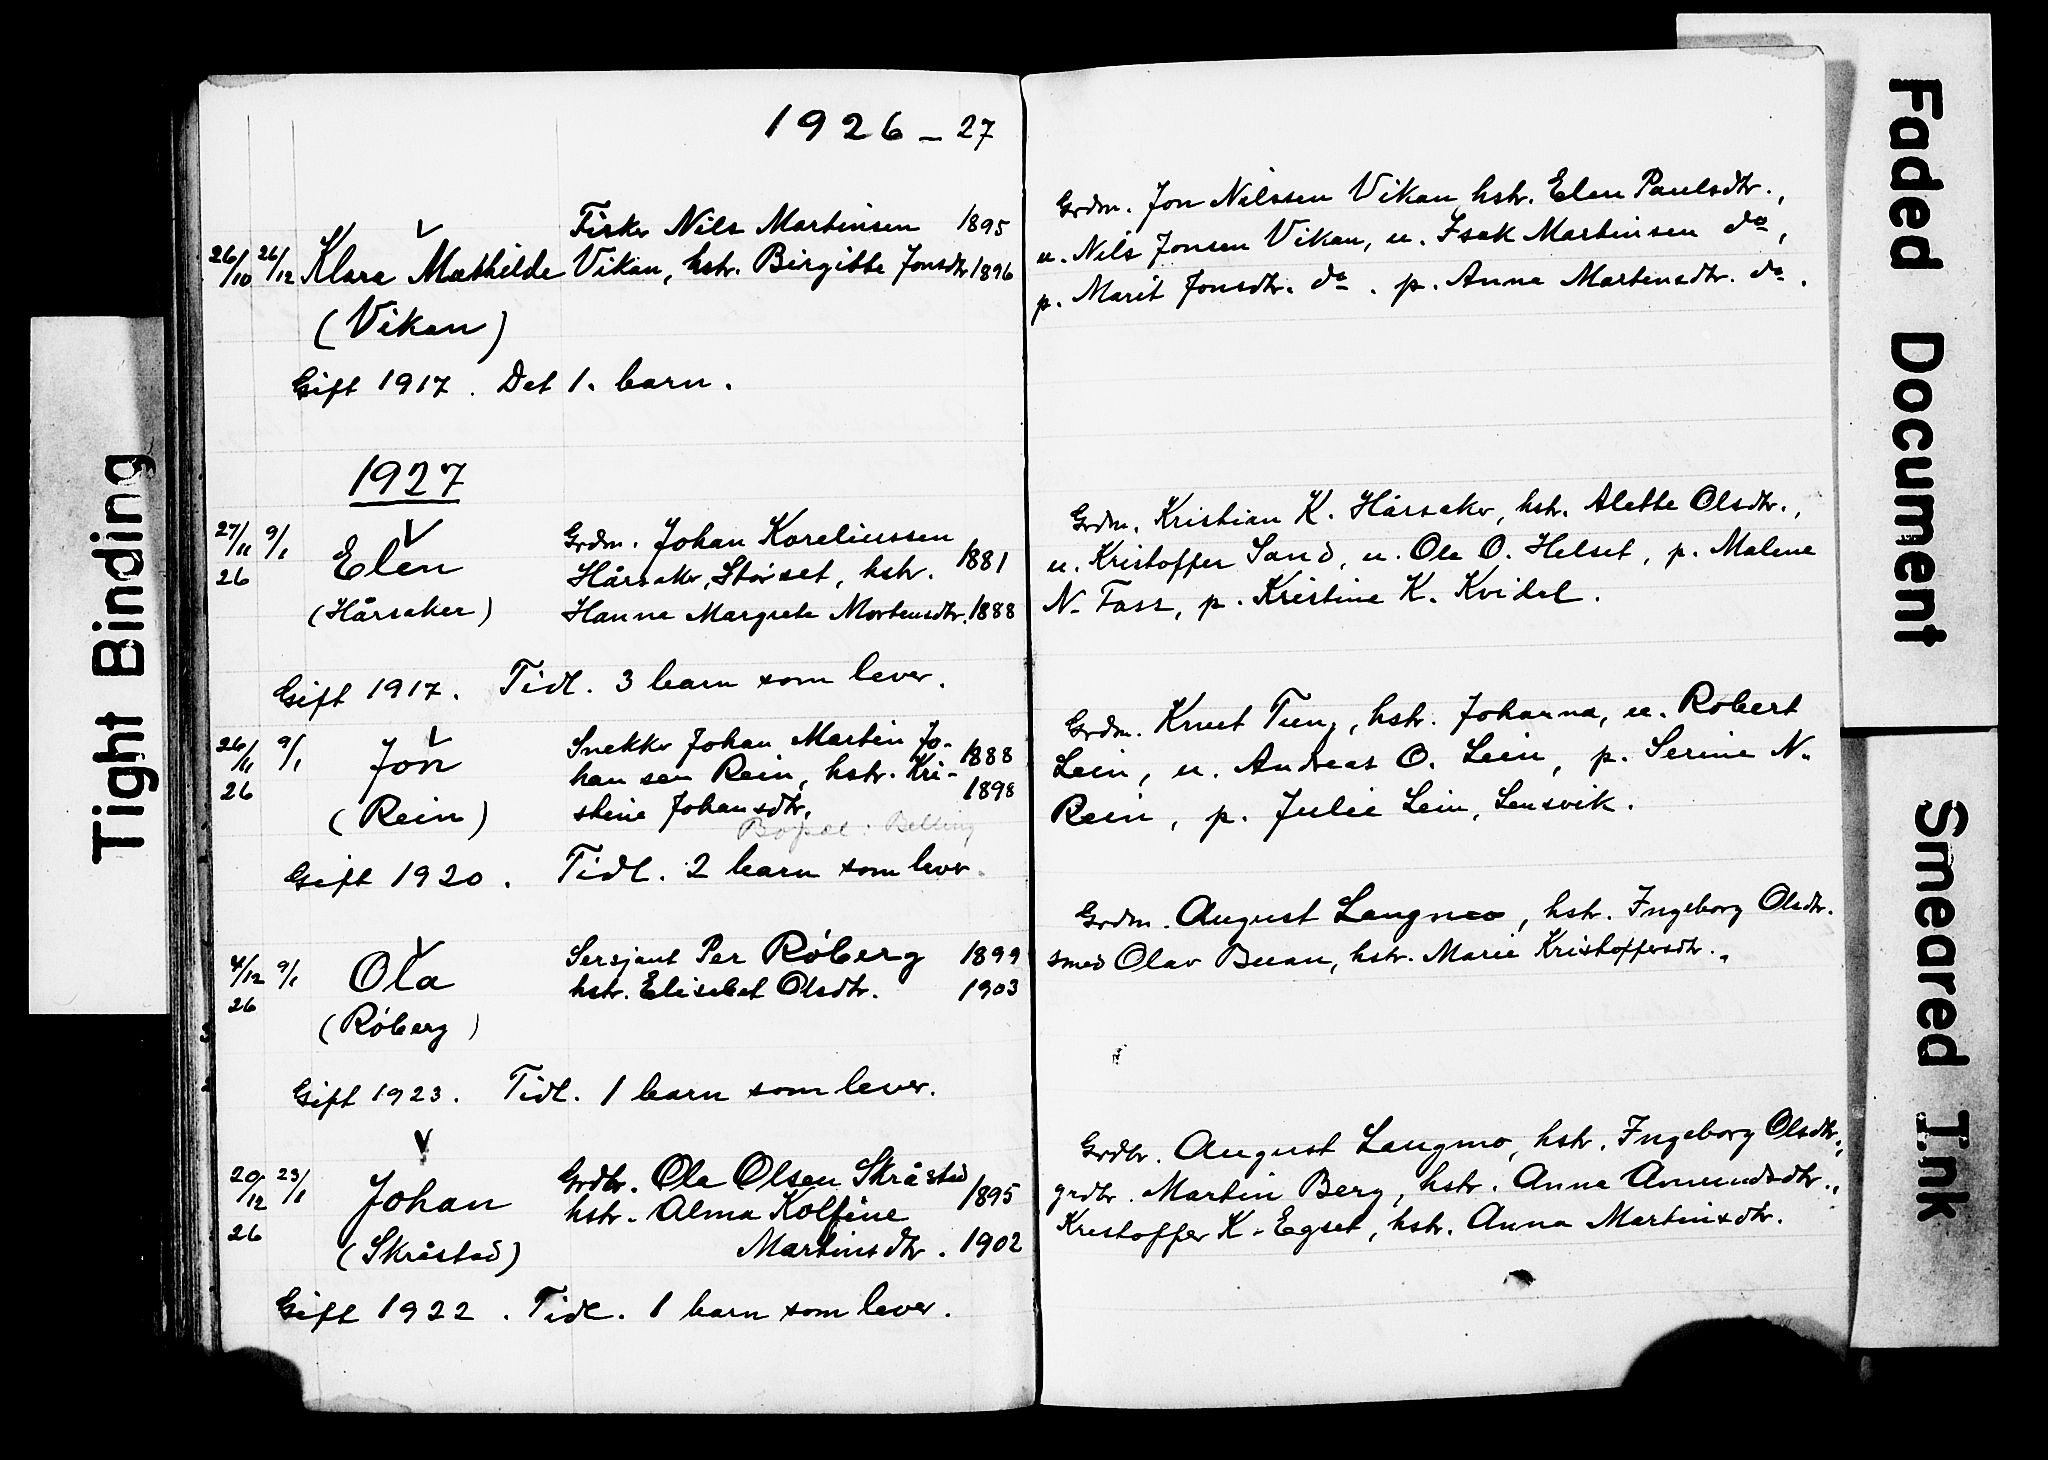 1926 – 27
26/10 26/12 Klara Mathilde
(Vikan)
Fisker Nils Martinsen 1895
Vikan, hstr. Birgitte Jonsdtr 1896
Gift 1917. Det 1. barn.
1927
27/11 26 9/1 Elen
(Hårsaker)
Grdm. Johan Koreliussen
Hårsaker, Störset, hstr. 1881
Hanna Margrete Mortensdtr. 1888
Gift 1917. Tidl. 3 barn som lever.
26/11 26 9/1 Jon
(Rein)
Snekker Johan Martin Jo- 1888
hansen Rein, hstr. Kri- 1898
stine Johansdtr.
Bopæl: Belling
Gift 1920. Tidl. 2 barn som lever.
4/12 26 9/1 Ola
(Röberg)
Sersjant Per Röberg 1899
hstr. Elisabet Olsdtr. 1903
Gift 1923. Tidl. 1 barn som lever.
20/12 26 23/1 Johan
(Skråstad)
Grdbr. Ole Olsen Skråstad
hstr. Alma Kolfine 1895
Martinsdtr. 1902
Gift 1922. Tidl. 1 barn som lever.
Grdm. Jon Nilssen Vikan, hstr. Elen Paulsdtr.,
u. Nils Jonsen Vikan, u. Isak Martinsen do,
p. Marit Jonsdtr. do. p. Anna Martinsdtr. do.
Grdm. Kristian K. Hårsaker, hstr. Alette Olsdtr.,
u. Kristoffer Sand, u. Ole O. Helset, p. Malene
N. Foss, p. Kristine K. Kvidal.
Grdm. Knut Tung, hstr. Johanna, u. Robert
Lein, u. Andreas O. Lein, p. Serine N.
Rein, p. Julie Lein, Lensvik.
Grdm. August Langmo, hstr. Ingeborg Olsdtr.
smed Olav Buan, hstr. Marie Kristoffersdtr.,
Grdbr. August Langmo, hstr. Ingeborg Olsdtr.,
grdbr. Martin Berg, hstr. Anna Amundsdtr.,
Kristoffer K. Egset, hstr. Anna Martinsdtr.
Tight Binding
Faded Document
Smeared Ink